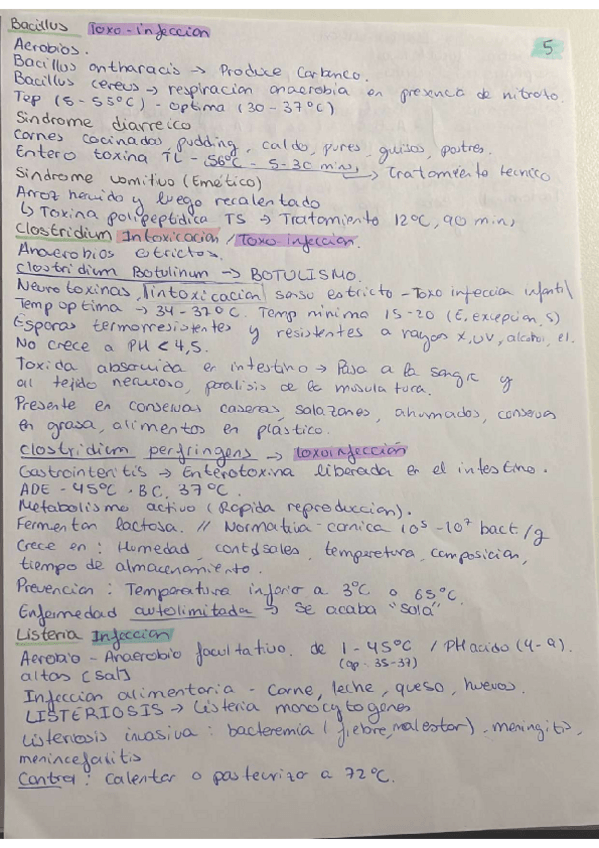 Bacillus Toxo-infeccion
5
Aerobios.
Bacillus antharacis → Produce Carbunco.
Bacillus cereus → respiración anaerobia en presencia de nitrato.
Tep (5-55°C) - optima (30-37°C)
Sindrome diarreico
Carnes cocinadas, pudding, caldo, pures, guisos, postres.
Entero toxina TL - 56°C - 5-30 min → Tratamiento termico
Sindrome vomitivo (Emético)
Arroz hervido y luego recalentado
↳ Toxina polipeptidica TS → Tratamiento 12°C, 90 min,
Clostridium Intoxicacion / Toxo infeccion.
Anaerobios estrictos.
Clostridium Botulinum → BOTULISMO.
Neurotoxinas, intoxicacion senso estricto - Toxo infeccion infantil
Temp optima → 34-37°C. Temp minimo 15-20 (E, excepcion, 5)
Esporas termorresistentes y resistentes a rayos X, UV, alcohol, el.
No crece a PH < 4,5.
Toxida absorvida en intestino → Pasa a la sangre y
al tejido nervioso, paralisis de la musculatura.
Presente en conservas caseras, salazones, ahumados, conservas
en grasa, alimentos en plástico.
Clostridium perfringens → toxoinfección
Gastrointeritis → Enterotoxina liberada en el intestino.
ADE - 45°C . BC. 37°C.
Metabolismo activo (Rapida reproduccion).
Fermentan lactosa. // Normativa - carnica 10⁵-10⁷ bact/g
Crece en: Humedad, contdsales, temperetura, composicion,
tiempo de almacenamiento.
Prevencion: Temperatura inferio a 3°C o 65°C.
Enfermedad autolimitada → Se acaba "sola"
Listeria Infeccion
Aerobio - Anaerobio facultativo. de 1-45°C / PH acido (4-9).
(op. 35-37)
altas [sal]
Infeccion alimentaria - Carne, leche, queso, huevos.
LISTERIOSIS → Listeria monocytogenes
Listeriosis invasiva: bacteremia (fiebre, malestar), meningitis,
menincefalitis
Control: Calentar o pasteurizar a 72°C.